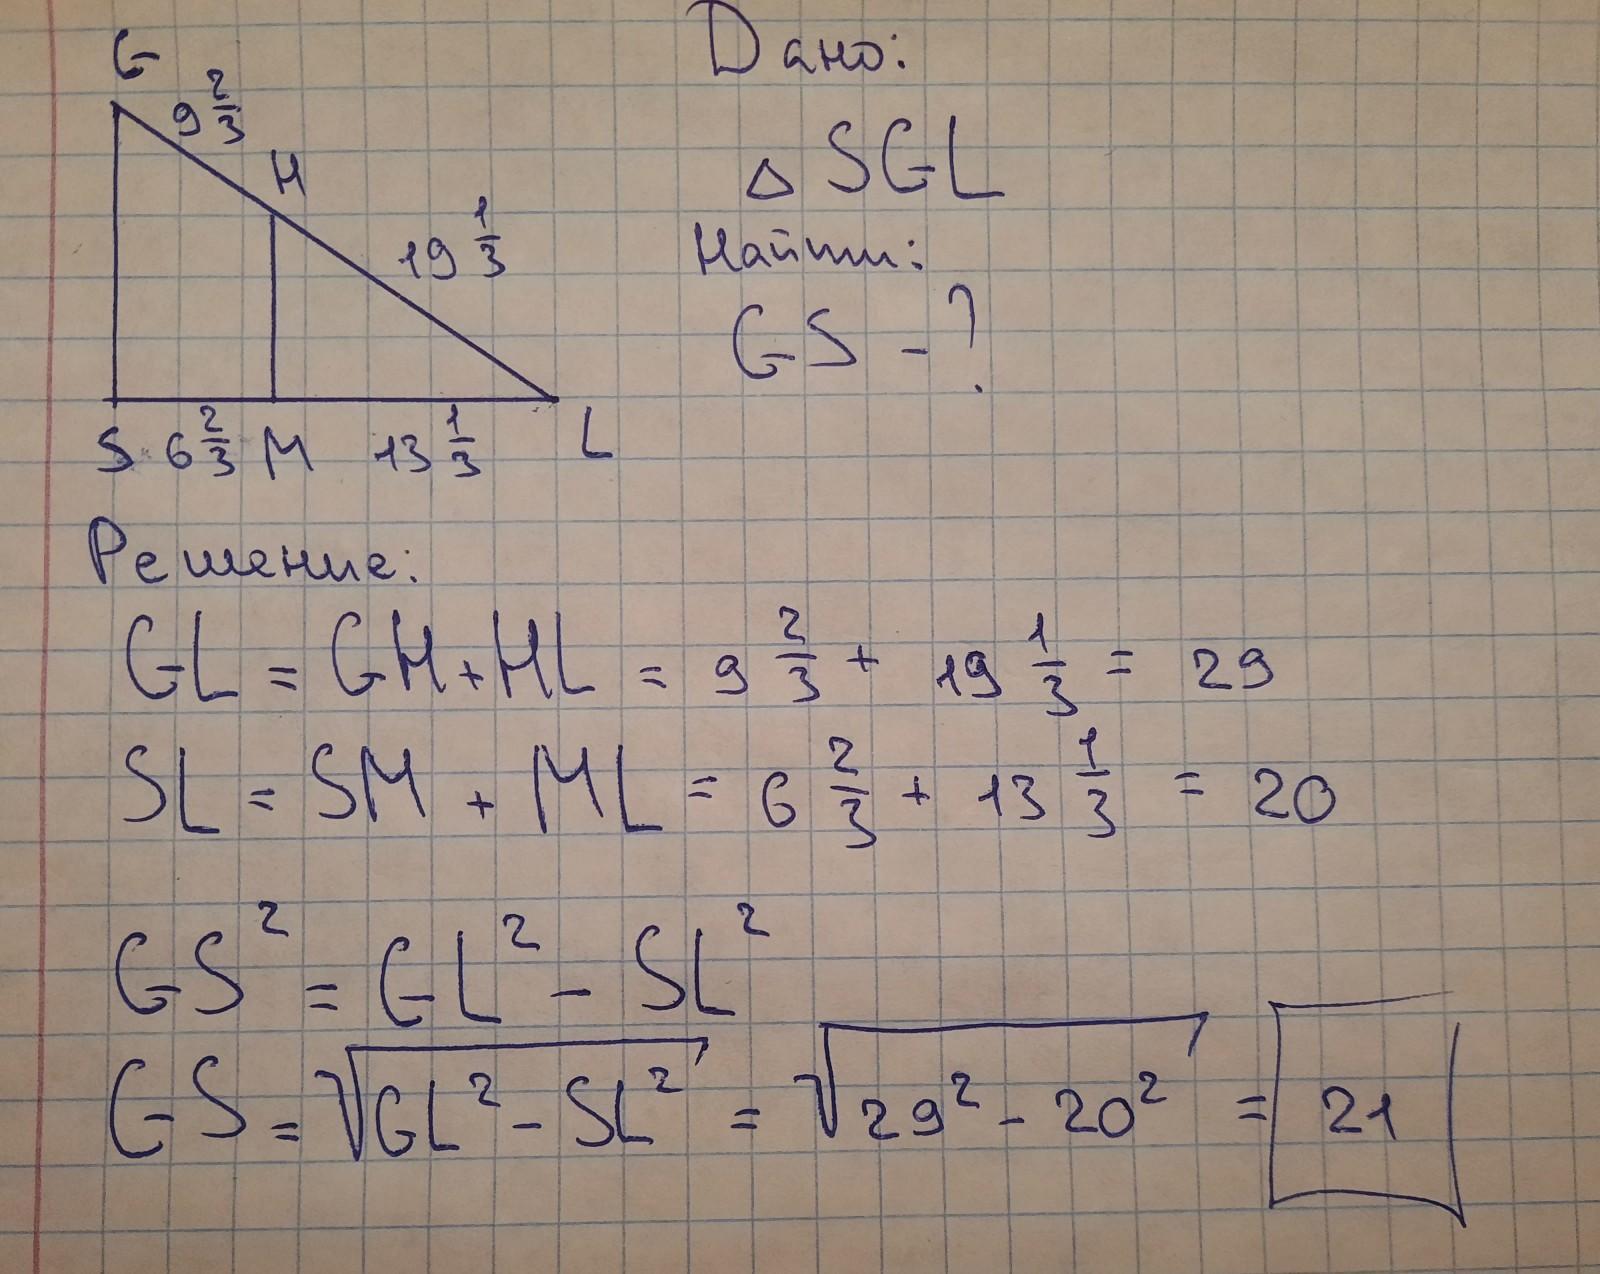 G
9 2/3
H
19 1/3
S 6 2/3 M 13 1/3 L
Дано:
△ SGL
Найти:
GS - ?
Решение:
GL = GH + HL = 9 2/3 + 19 1/3 = 29
SL = SM + ML = 6 2/3 + 13 1/3 = 20
GS² = GL² - SL²
GS = √GL² - SL² = √29² - 20² = 21